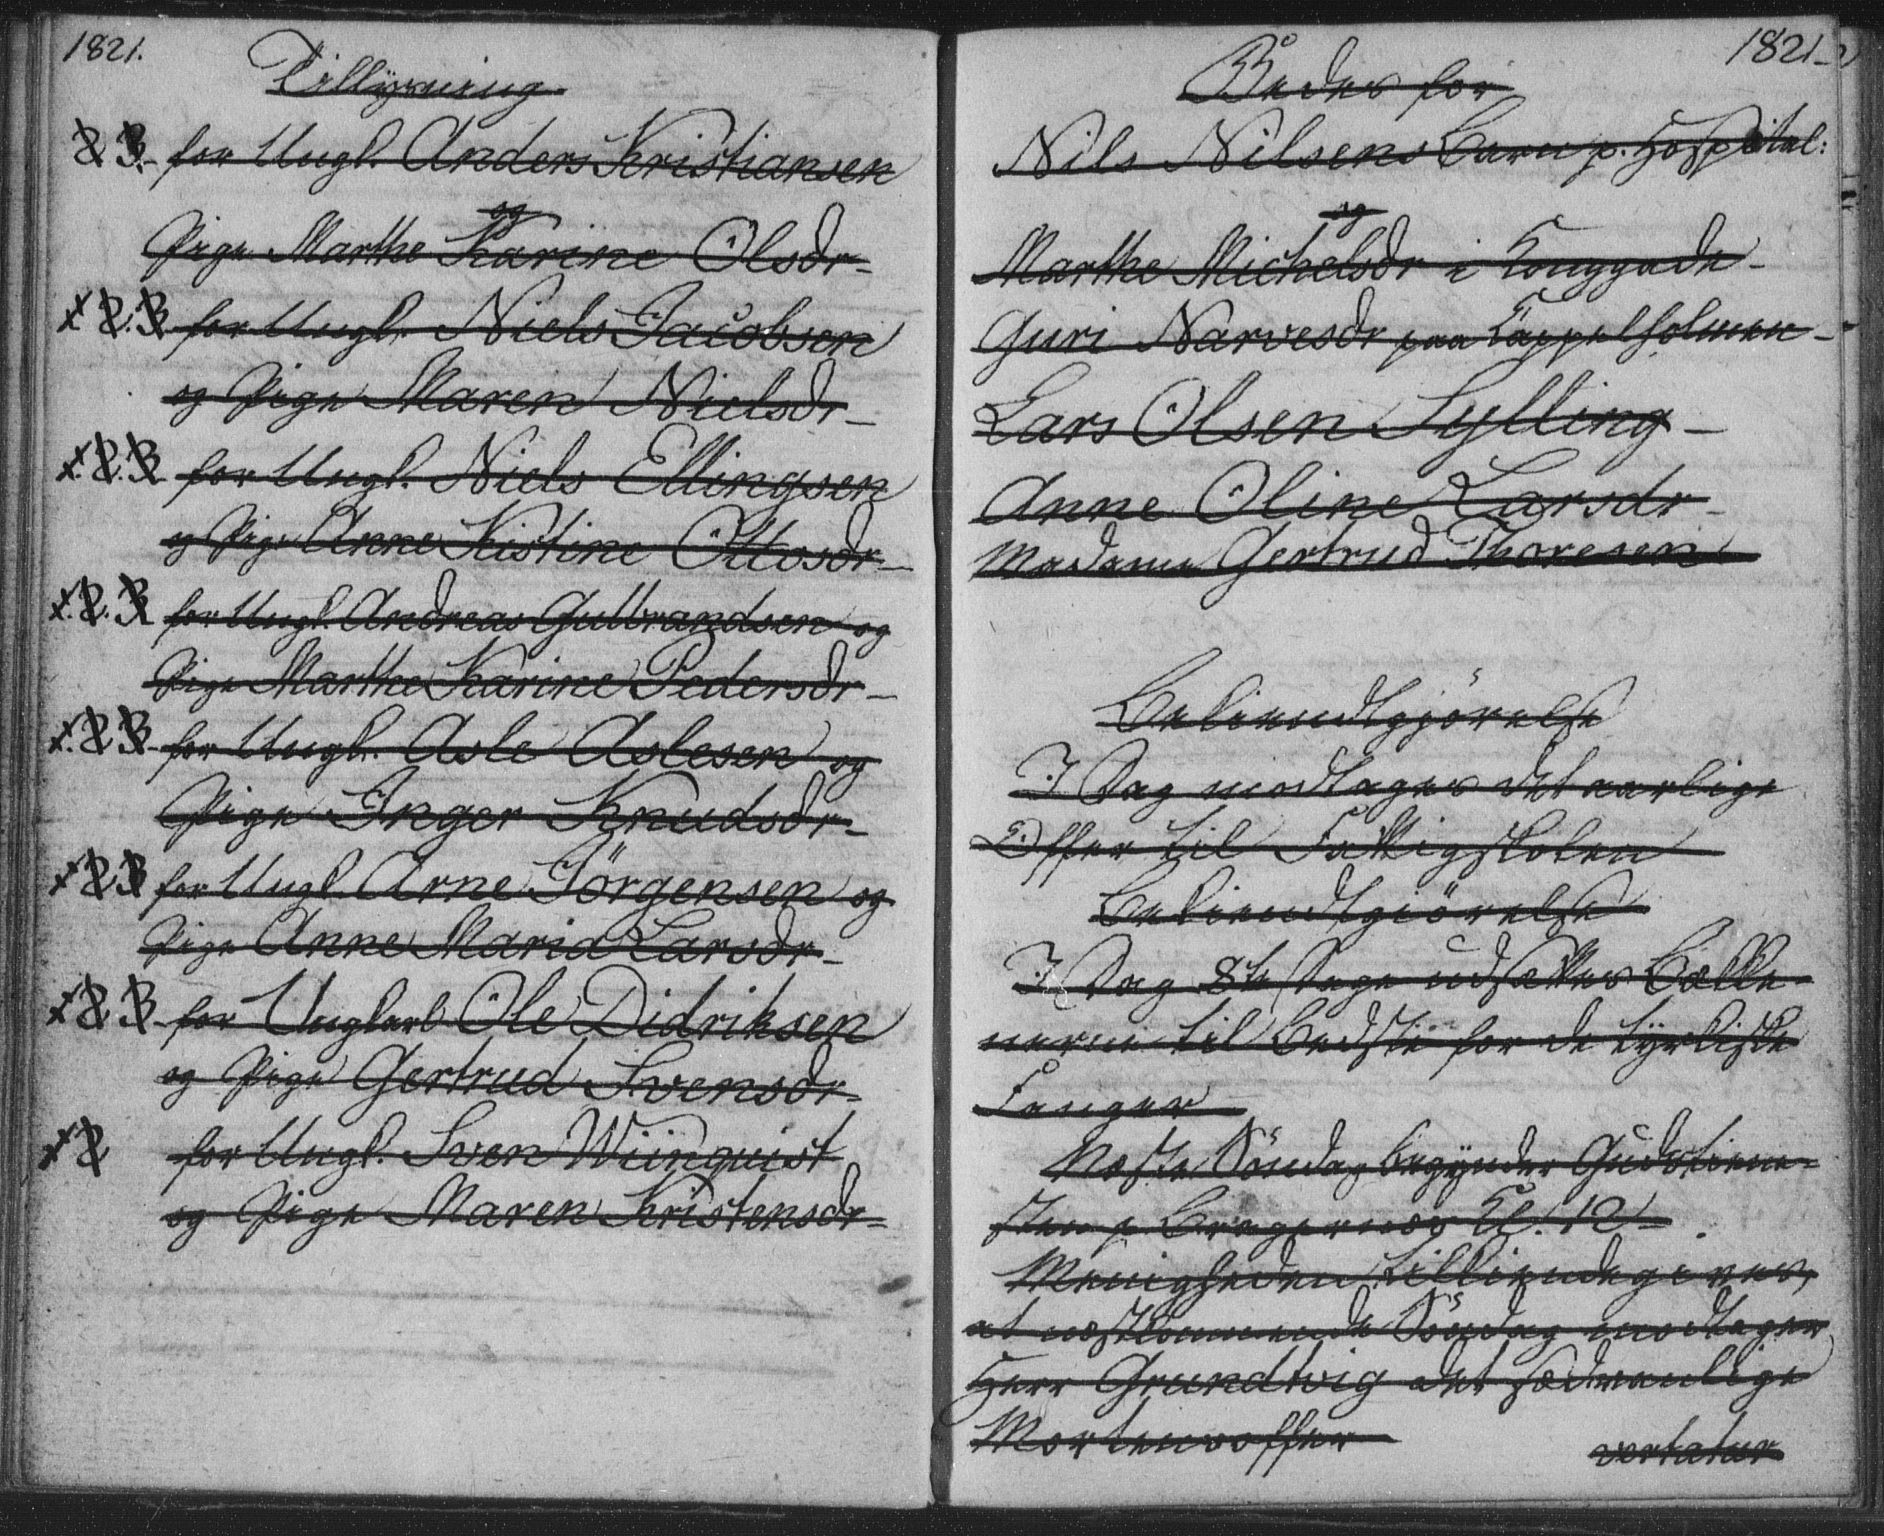 1821.
Tillysning
for Ungk. Anders Kristiansen
og
Pige Marthe Karine Olsdr
for Ungk. Niels Jacobsen
og Pige Maren Nielsdr
for Ungk. Niels Ellingsen
og Pige Anne Kistine Ottosdr
for Ungk. Andreas Gulbrandsen og
Pige Marthe Karine Pedersdr
for Ungk. Asle Aslesen og
Pige Inger Knudsdr
for Ungk. Arne Jörgensen og
Pige Anne Maria Larsdr
for Ungkarl Ole Didriksen
og Pige Gertrud Svensdr
for Ungk. Sven Wiinquist
og Pige Maren Kristensdr
1821
Bedes for
Nils Nilsens Barn p. Hospital:
og
Marthe Michelsdr i Konggade
Guri Narvesdr paa Kappelholmen
Lars Olsen Sylling
Anne Oline Larsdr
Madame Gertrud Thoresen
Bekiendtgjörelse
I Dag modtages det aarlige
Offer til Fattigskolen
Bekiendtgiörelse
I Dag 8te Dage udsættes Bække-
nerne til Bedste for de tyrkiske
Fanger
Næste Söndag begynder Gudstiene-
sten p. Bragernæs Kl. 12
Menigheden tilkiendegives,
at næstkommende Söndag modtager
Herr Grundtvig det sædvanlige
Mortensoffer
vertatur